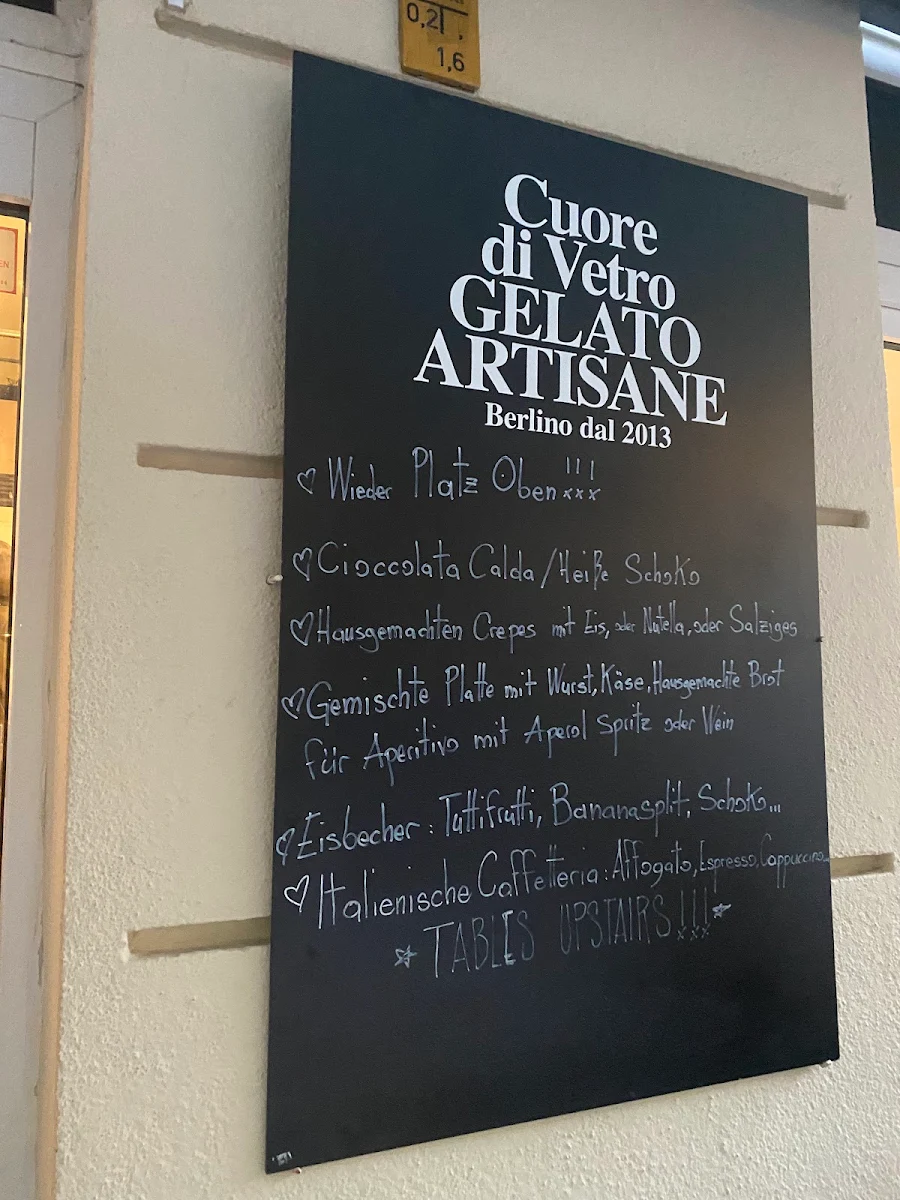 0,2
1,6
Cuore
di Vetro
GELATO
ARTISANE
Berlino dal 2013
♡ Wieder Platz Oben!!!
♡ Cioccolata Calda/Heiße Schoko
♡ Hausgemachten Crepes mit Eis, oder Nutella, oder Salziges
♡ Gemischte Platte mit Wurst, Käse, Hausgemachte Brot
für Aperitivo mit Aperol Spritz oder Wein
♡ Eisbecher: Tuttifrutti, Bananasplit, Schoko...
♡ Italienische Caffetteria: Affogato, Espresso, Cappuccino...
☆ TABLES UPSTAIRS!!! ☆